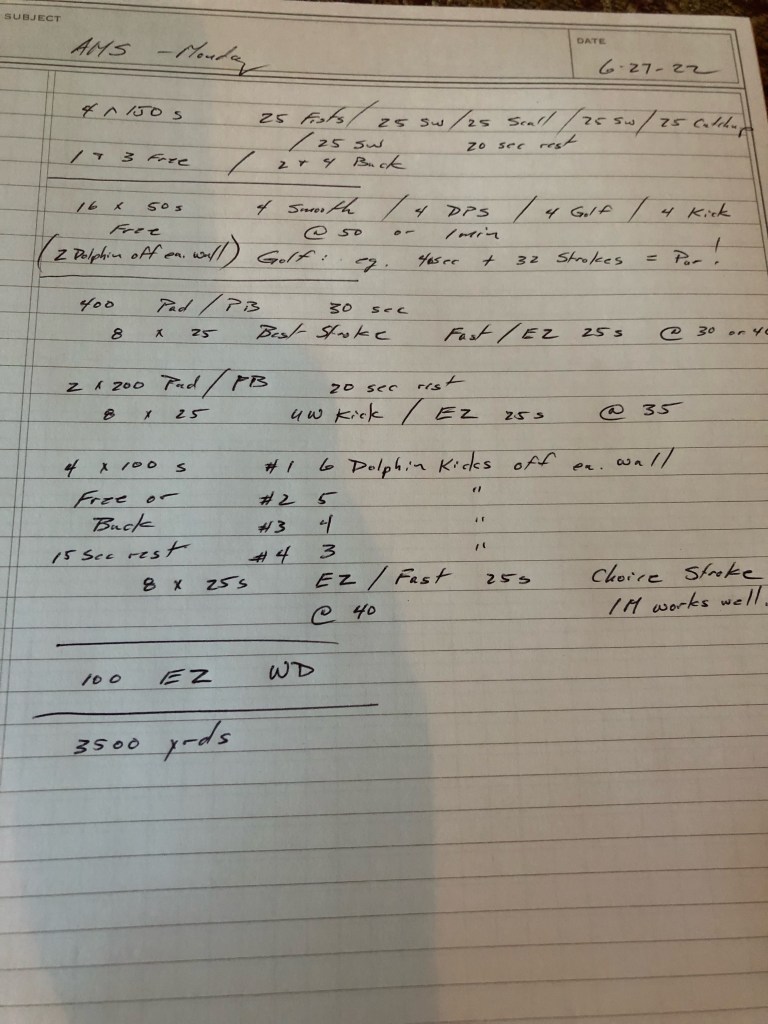 SUBJECT
DATE
AMS - Monday
6-27-22
4 x 150 s 25 Fists / 25 sw / 25 Scull / 25 sw / 25 Catchup
/ 25 sw 20 sec rest
1 + 3 Free / 2 + 4 Back
16 x 50s 4 Smooth / 4 DPS / 4 Golf / 4 Kick
Free @ 50 or 1 min
(2 Dolphin off ea. wall) Golf: eg. 40sec + 32 Strokes = Par!
400 Pad / PB 30 sec
8 x 25 Best Stroke Fast / EZ 25s @ 30 or 40
2 x 200 Pad / PB 20 sec rest
8 x 25 UW Kick / EZ 25s @ 35
4 x 100 s #1 6 Dolphin Kicks off ea. wall
Free or #2 5 "
Back #3 4 "
15 Sec rest #4 3 "
8 x 25s EZ / Fast 25s Choice Stroke
@ 40 IM works well.
100 EZ WD
3500 yrds